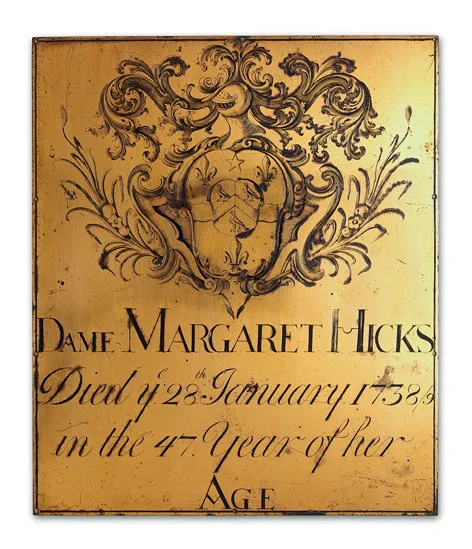 DAME MARGARET HICKS
Died yᵉ 28ᵗʰ January 1738/9
in the 47 Year of her
AGE